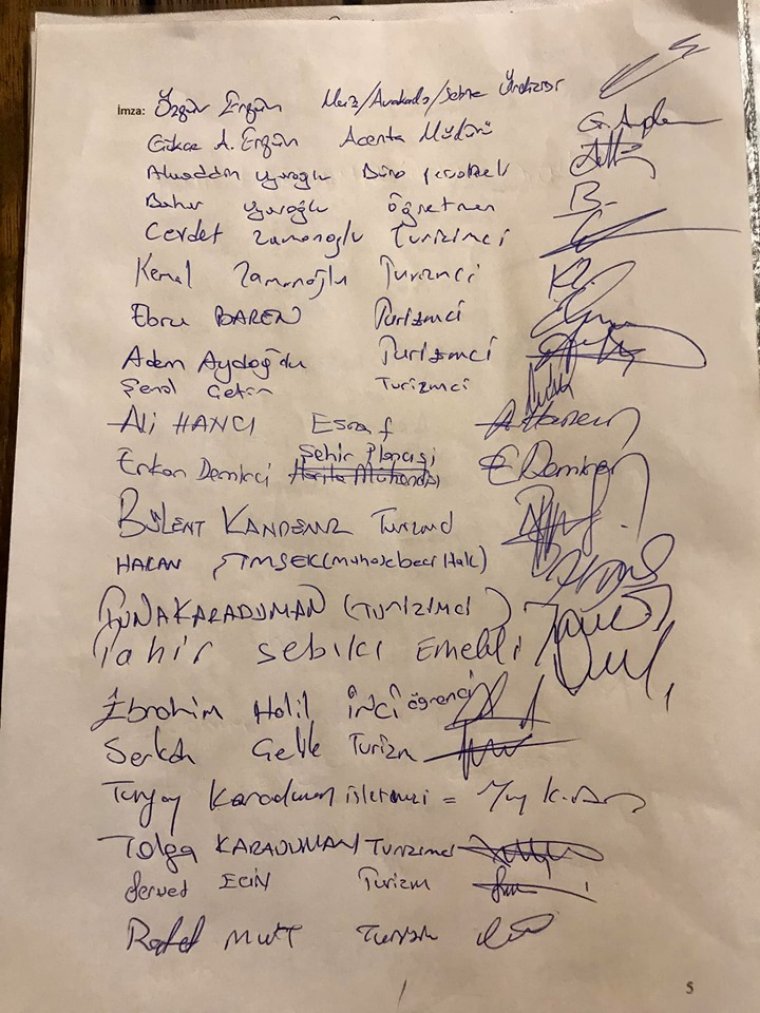 İmza: Özgür Ergün Muz/Avakado/Sebze Üreticisi
Gökçe A. Ergün Acenta Müdürü
Alaaddin Büro personeli
Bahar Öğretmen
Cevdet Zamanoğlu Turizimci
Kemal Zamanoğlu Turizmci
Ebru BAREN Turizmci
Adem Aydoğdu Turizmci
Şenol Çetin Turizmci
Ali HANCI Esnaf
Erkan Demirci Şehir Plancısı Harita Mühendisi E Demirci
BÜLENT KANDEMİR Turizmci
HAKAN ŞİMŞEK (muhasebeci Hak)
TUNA KARADUMAN (TURİZİMCİ)
Tahir Sebilci Emekli
İbrahim Halil İNCİ öğrenci
Serkan Çelik Turizm
Turgay Karaduman işletmeci =
Tolga KARADUMAN Turizmci
Servet ECİN Turizm
MUTT Turizm
5